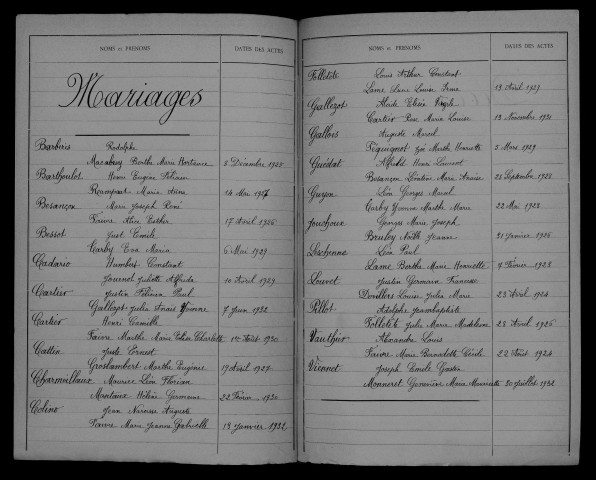 NOMS et PRENOMS DATES DES ACTES
Mariages
Barberis Rodolphe
Macabrey Berthe Marie Hortense 5 Décembre 1925
Barthoulot Henri Eugène Félicien
Rampart Maria 14 Mai 1927
Besançon Marie Joseph René
Faivre Alice Esther 17 Avril 1926
Bessot Just Emile
Carby Eva Maria 6 Mai 1929
Cadario Humbert Constant
Journot Juliette Alfrida 10 Avril 1929
Cartier Justin Félicien Paul
Gallezot Julia Anaïs Yvonne 7 Juin 1932
Cartier Henri Camille
Faivre Marthe Marie Elia Charlotte 1er Août 1930
Cattin Juste Ernest
Groslambert Marthe Eugénie 19 Avril 1927
Charmillaux Maurice Léon Florian
Montaux Hélène Germaine 22 Février 1930
Colino Jean Narcisse Auguste
Faivre Marie Jeanne Gabrielle 13 Janvier 1931
NOMS et PRENOMS DATES DES ACTES
Folletête Louis Arthur Constant
Lame Louise Anna 13 Avril 1929
Gallezot Alcide Elisée
Cartier Rose Marie Louise 13 Novembre 1931
Gallois Auguste Marcel
Péquignot Marthe Henriette 5 Mars 1929
Guédat Alfred Henri Laurent
Besançon Léontine Marie Anaïse 21 Septembre 1923
Guyon Léon Georges Marcel
Carby Yvonne Marthe Marie 22 Mai 1922
Jouchoux Georges Marie Joseph
Bruley Noëlle Jeanne 31 Janvier 1926
Léon Paul
Lame Berthe Marie Henriette 7 Février 1928
Louvet Justin Germain Francois
Louise Julia Maria 23 Avril 1924
Pillot Adolphe Jeanbaptiste
Folletête Julie Marie Madeleine 23 Avril 1926
Vauthier Alexandre Louis
Faivre Marie Bernadette Cécile 22 Août 1924
Viennet Joseph Emile Gaston
Monneret Geneviève Marie 30 Juillet 1932